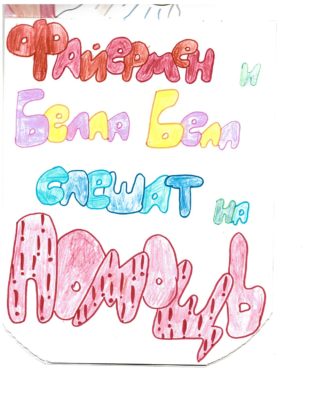 Файермен и
Белла Белл
спешат на
помощь